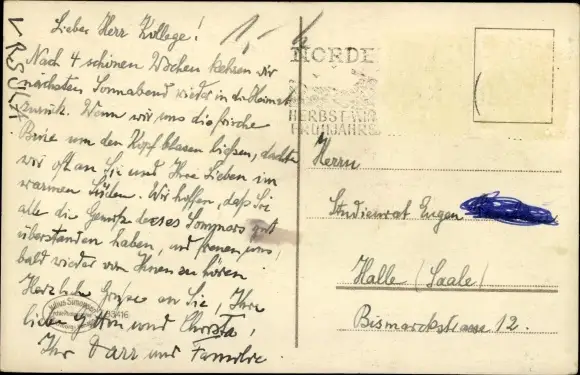 Lieber Herr Kollege!
Nach 4 schönen Wochen kehren wir
nächsten Sonnabend wieder in die Heimat
zurück. Wenn wir uns die frische
Brise um den Kopf blasen ließen, dachten
wir oft an Sie und Ihre Lieben im
warmen Süden. Wir hoffen, daß Sie
alle die Genüsse dieses Sommers gut
überstanden haben, und freuen uns,
bald wieder von Ihnen zu hören
Herzliche Grüße an Sie, Ihre
liebe Gattin und Christa,
Ihr Darr und Familie
URSULA
NORDE
HERBST
FRÜHJAHRS
Herrn
Studienrat Eugen
Halle (Saale)
Bismarckstrasse 12.
Julius Simonsen
38416